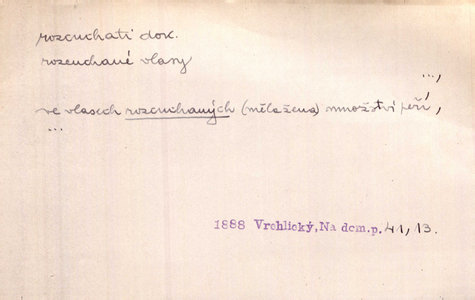 rozcuchati dok.
rozcuchané vlasy
...,
ve vlasech rozcuchaných (měla žena) množství peří,
...
1888 Vrchlický, Na dom.p. 41, 13.